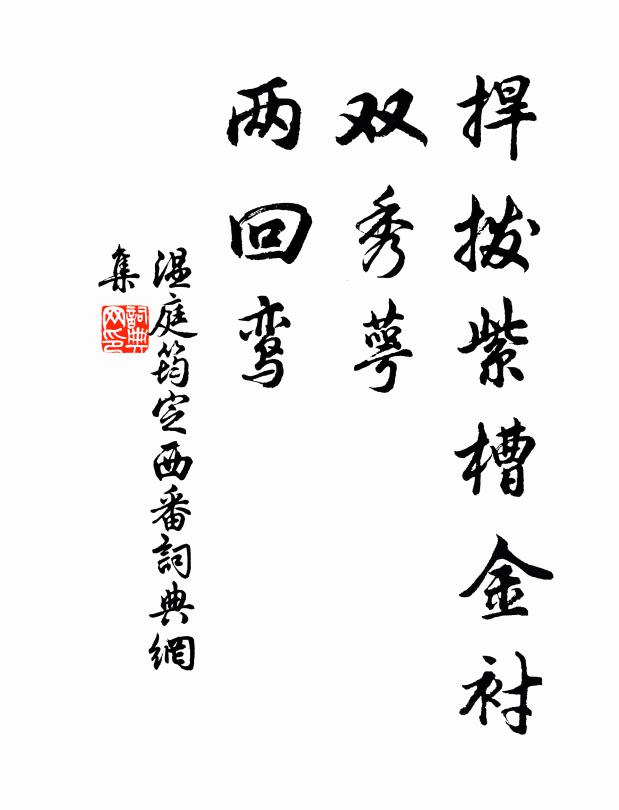 捍拨紫槽金衬
双秀萼
两回鸾
温庭筠定西番詞典網
集
詞典网印